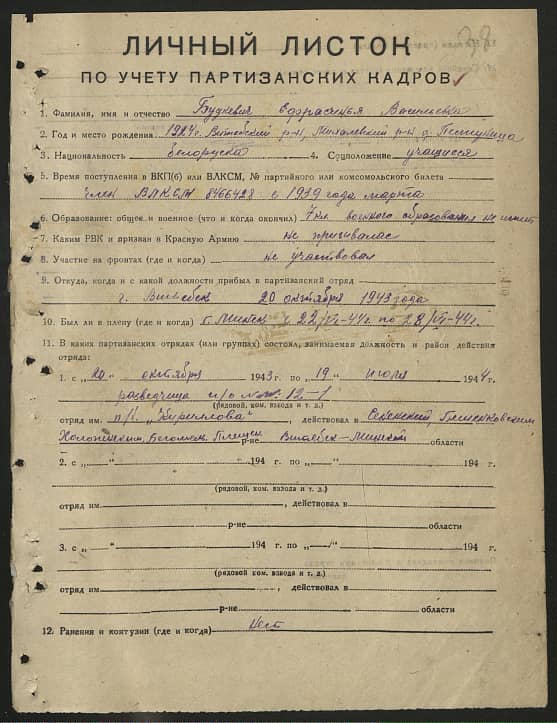 ЛИЧНЫЙ ЛИСТОК
ПО УЧЕТУ ПАРТИЗАНСКИХ КАДРОВ
1. Фамилия, имя и отчество Будкевич Васильевна
2. Год и место рождения 1924 г. Витебский р-н, р-н д.
3. Национальность белоруска 4. Соцположение учащийся
5. Время поступления в ВКП(б) или ВЛКСМ, № партийного или комсомольского билета
член ВЛКСМ 8466428 с 1939 года марта
6. Образование: общее и военное (что и когда окончил) 7 кл. военного образования не имеет
7. Каким РВК и призван в Красную Армию не призывалас
8. Участие на фронтах (где и когда) не участвовал
9. Откуда, когда и с какой должности прибыл в партизанский отряд
г. Витебск 20 октября 1943 года
10. Был ли в плену (где и когда) г. Минск с 22/VI-44г. по 28/VI-44г.
11. В каких партизанских отрядах (или группах) состоял, занимаемая должность и район действия
отряда:
1. с „20 октября 1943 г. по „19 " июля 1944 г.
разведчица 12-1
(рядовой, ком. взвода и т. д.)
отряд им. п/о „Кириллова" , действовал в Сененский,
Холопинским, Бегомль. Плещен. р-не Вилейск-Минской области
2. с „ " 194 г. по „ " 194 г.
(рядовой, ком. взвода и т. д.)
отряд им. , действовал в
р-не области
3. с „ " 194 г. по „ " 194 г.
(рядовой, ком. взвода и т. д.)
отряд им. , действовал в
р-не области
12. Ранения и контузии (где и когда) Нет